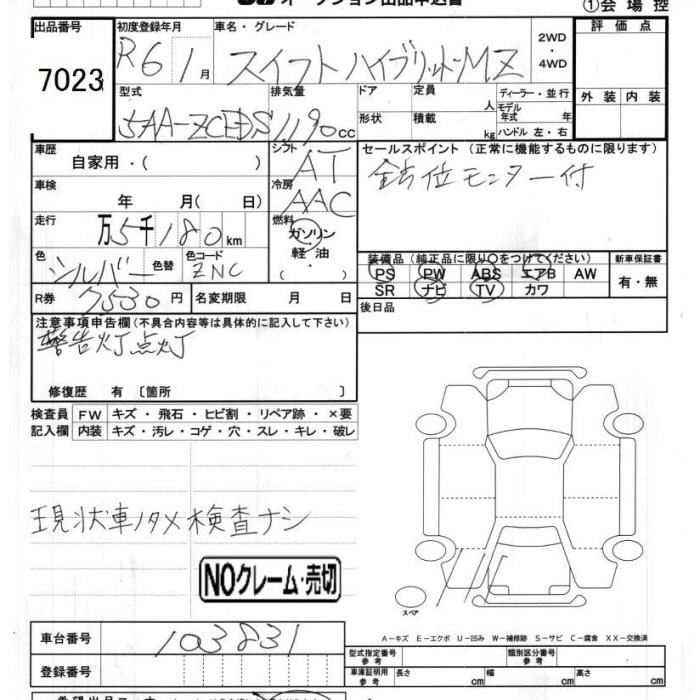 オークション出品申込書
①会場控
出品番号 初度登録年月 車名・グレード 評価点
7023 R6 1月 スイフト ハイブリットMZ 2WD・4WD
型式 排気量 ドア 定員 人 ディーラー・並行 外装 内装
5AA-ZCEDS 1190cc 形状 積載 kg モデル年式 年
ハンドル 左・右
車歴 シフト セールスポイント（正常に機能するものに限ります）
自家用・（ ） AT 全方位モニター付
車検 冷房
年 月（ 日） AAC
走行 燃料
万5千180km ガソリン
軽油
・（ ）
色 色替 色コード 装備品（純正品に限り○をつけてください） 新車保証書
シルバー ZNC PS PW ABS エアB AW 有・無
SR ナビ TV カワ
R券 7530円 名変期限 月 日 後日品
注意事項申告欄（不具合内容等は具体的に記入して下さい）
警告灯点灯
修復歴 有〔箇所 〕
検査員 FW キズ・飛石・ヒビ割・リペア跡・×要
記入欄 内装 キズ・汚レ・コゲ・穴・スレ・キレ・破レ
現状車ノタメ検査ナシ
NOクレーム・売切
スペア
A－キズ E－エクボ U－凹み W－補修跡 S－サビ C－腐食 XX－交換済
車台番号 103831
型式指定番号 参考 類別区分番号 参考
登録番号 車庫証明用 参考 長さ cm 幅 cm 高さ cm